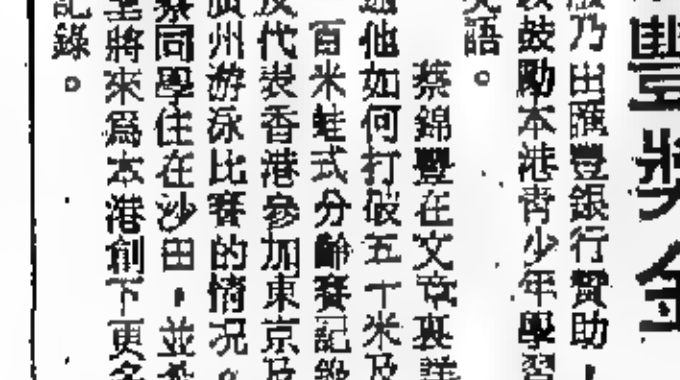 豐獎金
版乃由匯豐銀行贊助，
鼓勵本港青少年學習
英語。
蔡錦豐在文章裏詳
他如何打破五十米及
百米蛙式分齡賽記錄
及代表香港參加東京及
廣州游泳比賽的情況。
蔡同學住在沙田，並希
望將來爲本港創下更多
記錄。